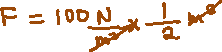 F = 100 N/m² × 1/2 m²